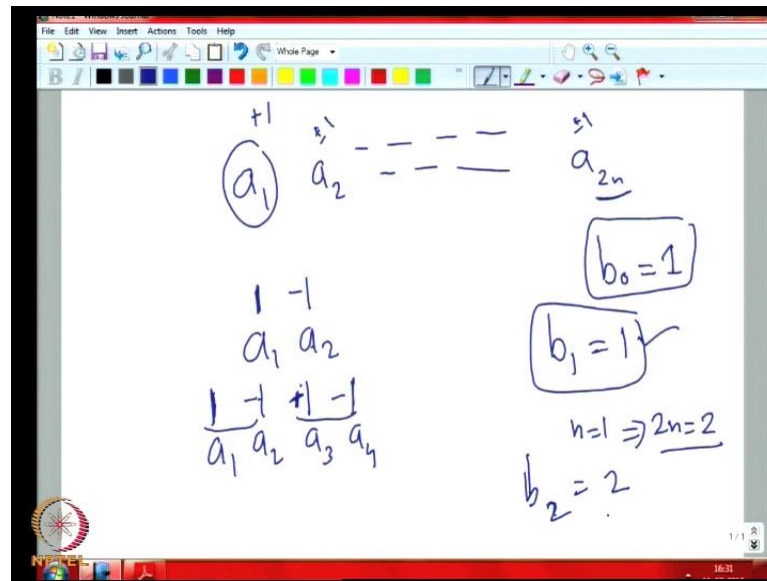 File Edit View Insert Actions Tools Help
Whole Page
B I
+1
a₁ a₂ – – – – a₂ₙ
b₀ = 1
1 -1
a₁ a₂
b₁ = 1
1 -1 +1 -1
a₁ a₂ a₃ a₄
n=1 ⇒ 2n=2
b₂ = 2
1/1
NPTEL
16:31